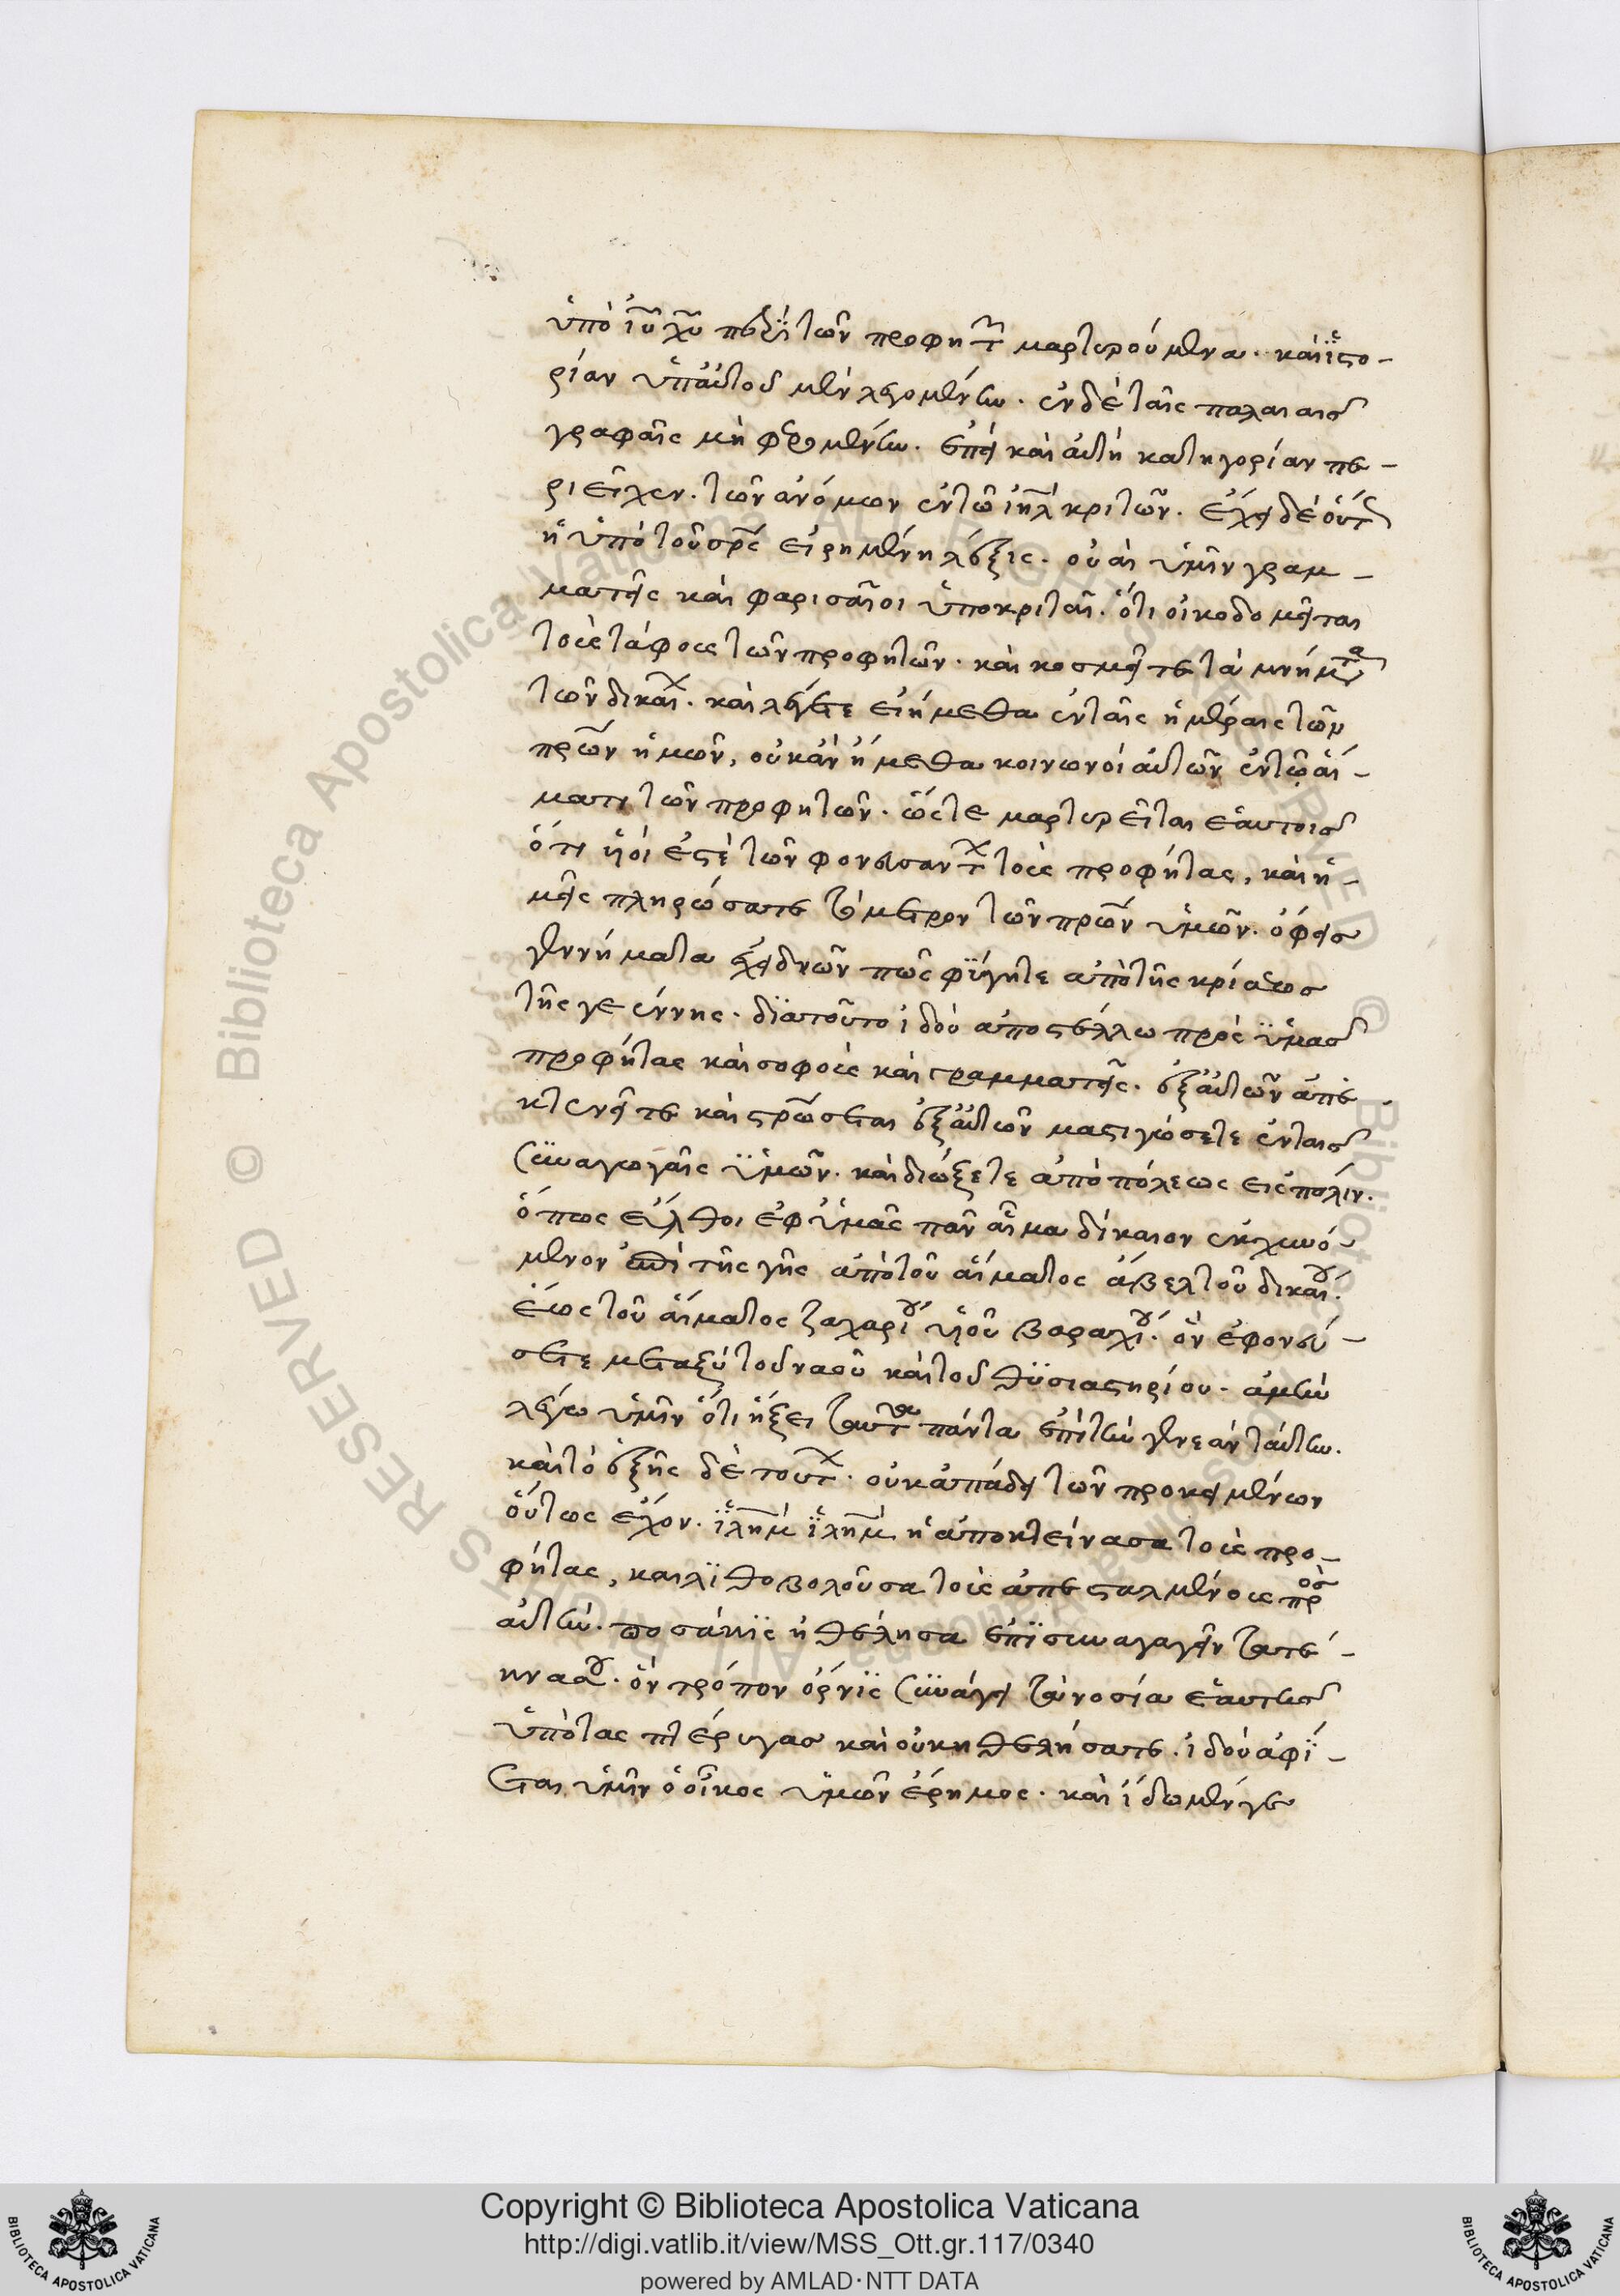 ὑπὸ ἰῦ χῦ περὶ τῶν προφητ μαρτυρούμενα. καὶ ἱστο-
ρίαν ὑπ' αὐτοῦ μὲν λεγομένην. ἐν δὲ ταῖς παλαιαῖς
γραφαῖς μὴ φερομένην. ἐπεὶ καὶ αὐτὴ κατηγορίαν πε-
ριεῖχεν. τῶν ἀνόμων ἐν τῶ ἰηλ κριτῶν. ἔχει δὲ οὕτ
ἡ ὑπὸ τοῦ σρς εἰρημένη λέξις. οὐαὶ ὑμῖν γραμ-
ματεῖς καὶ φαρισαῖοι ὑποκριταὶ. ὅτι οἰκοδομεῖται
τοὺς τάφους τῶν προφητῶν. καὶ κοσμεῖτε τὰ μνήμτα
τῶν δικαι. καὶ λέγετε εἰ ἤμεθα ἐν ταῖς ἡμέραις τῶν
πρῶν ἡμῶν, οὐκ ἂν ἤμεθα κοινωνοὶ αὐτῶν ἐν τῶ αἵ-
ματι τῶν προφητῶν. ὥστε μαρτυρεῖται ἑαυτοῖς
ὅτι ϋἱοί ἐστὲ τῶν φονευσαντ τοὺς προφήτας, καὶ ἡ-
μεῖς πληρώσατε τὸ μέτρον τῶν πρῶν ὑμῶν. ὄφεις
γεννήματα ἐχειδνῶν πῶς φύγητε ἀπὸ τῆς κρίσεως
τῆς γεέννης. διατοῦτο ἰδοὺ ἀποστέλλω πρὸς ὑμᾶς
προφήτας καὶ σοφοὺς καὶ γραμματεῖς. ἐξ αὐτῶν ἀπε
κτενεῖτε καὶ στρώσεται ἐξ αὐτῶν μαστιγώσετε ἐν ταῖς
συναγωγαῖς ὑμῶν. καὶ διώξετε ἀπὸ πόλεως εἰς πόλιν.
ὅπως ἔλθοι ἐφ' ὑμᾶς πᾶν αἷμα δίκαιον ἐκχυνό-
μενον ἐπὶ τῆς γῆς ἀπὸ τοῦ αἵματος ἄβελ τοῦ δικαίου.
ἕως τοῦ αἵματος ζαχαρίου ϋἱοῦ βαραχίου. ὃν ἐφονεύ-
σετε μεταξὺ τοῦ ναοῦ καὶ τοῦ θυσιαστηρίου. ἀμὴν
λέγω ὑμῖν ὅτι ἥξει ταῦτα πάντα ἐπὶ τὴν γενεὰν ταύτην.
καὶ τὸ ἑξῆς δὲ τουτ. οὐκ ἀπάδει τῶν προκειμένων
οὕτως ἔχον. ἱλημ ἱλημ ἡ ἀποκτείνασα τοὺς προ-
φήτας, καὶ λιθοβολοῦσα τοὺς ἀπεσταλμένους πρὸς
αὐτήν. ποσάκις ἠθέλησα ἐπισυναγαγεῖν τὰ τέ-
κνα σου. ὃν τρόπον ὄρνις συνάγει τὰ νοσία ἑαυτῆς
ὑπὸ τὰς πτέρυγας καὶ οὐκ ἠθελήσατε. ἰδοὺ ἀφί-
εται ὑμῖν ὁ οἶκος ὑμῶν ἔρημος. καὶ ἴδωμέν γε
Copyright © Biblioteca Apostolica Vaticana
http://digi.vatlib.it/view/MSS_Ott.gr.117/0340
powered by AMLAD·NTT DATA